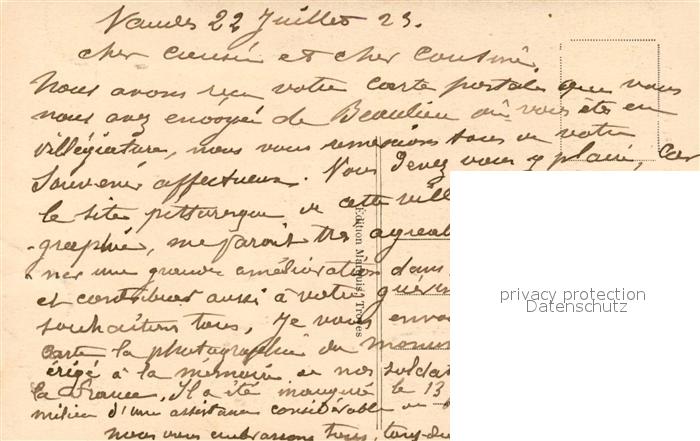 Vaudes 22 Juillet 23.
cher cousin et cher cousine,
Nous avons reçu votre carte postale que vous
nous avez envoyée de Beaulieu où vous êtes en
villégiature, nous vous remercions tous de votre
souvenir affectueux. Vous devez vous y plaire, car
le site pittoresque de cette ville
graphié, me parait très agréab
ner une grande amélioration dans
et contribuer aussi à votre guéris
souhaitons tous, Je vous envoi
carte la photographie du monum
érigé à la mémoire de nos soldat
la France. Il a été inauguré le 13
milieu d'une assistance considérable
nous vous embrassons tous,
Édition Marquis, Troyes
privacy protection
Datenschutz